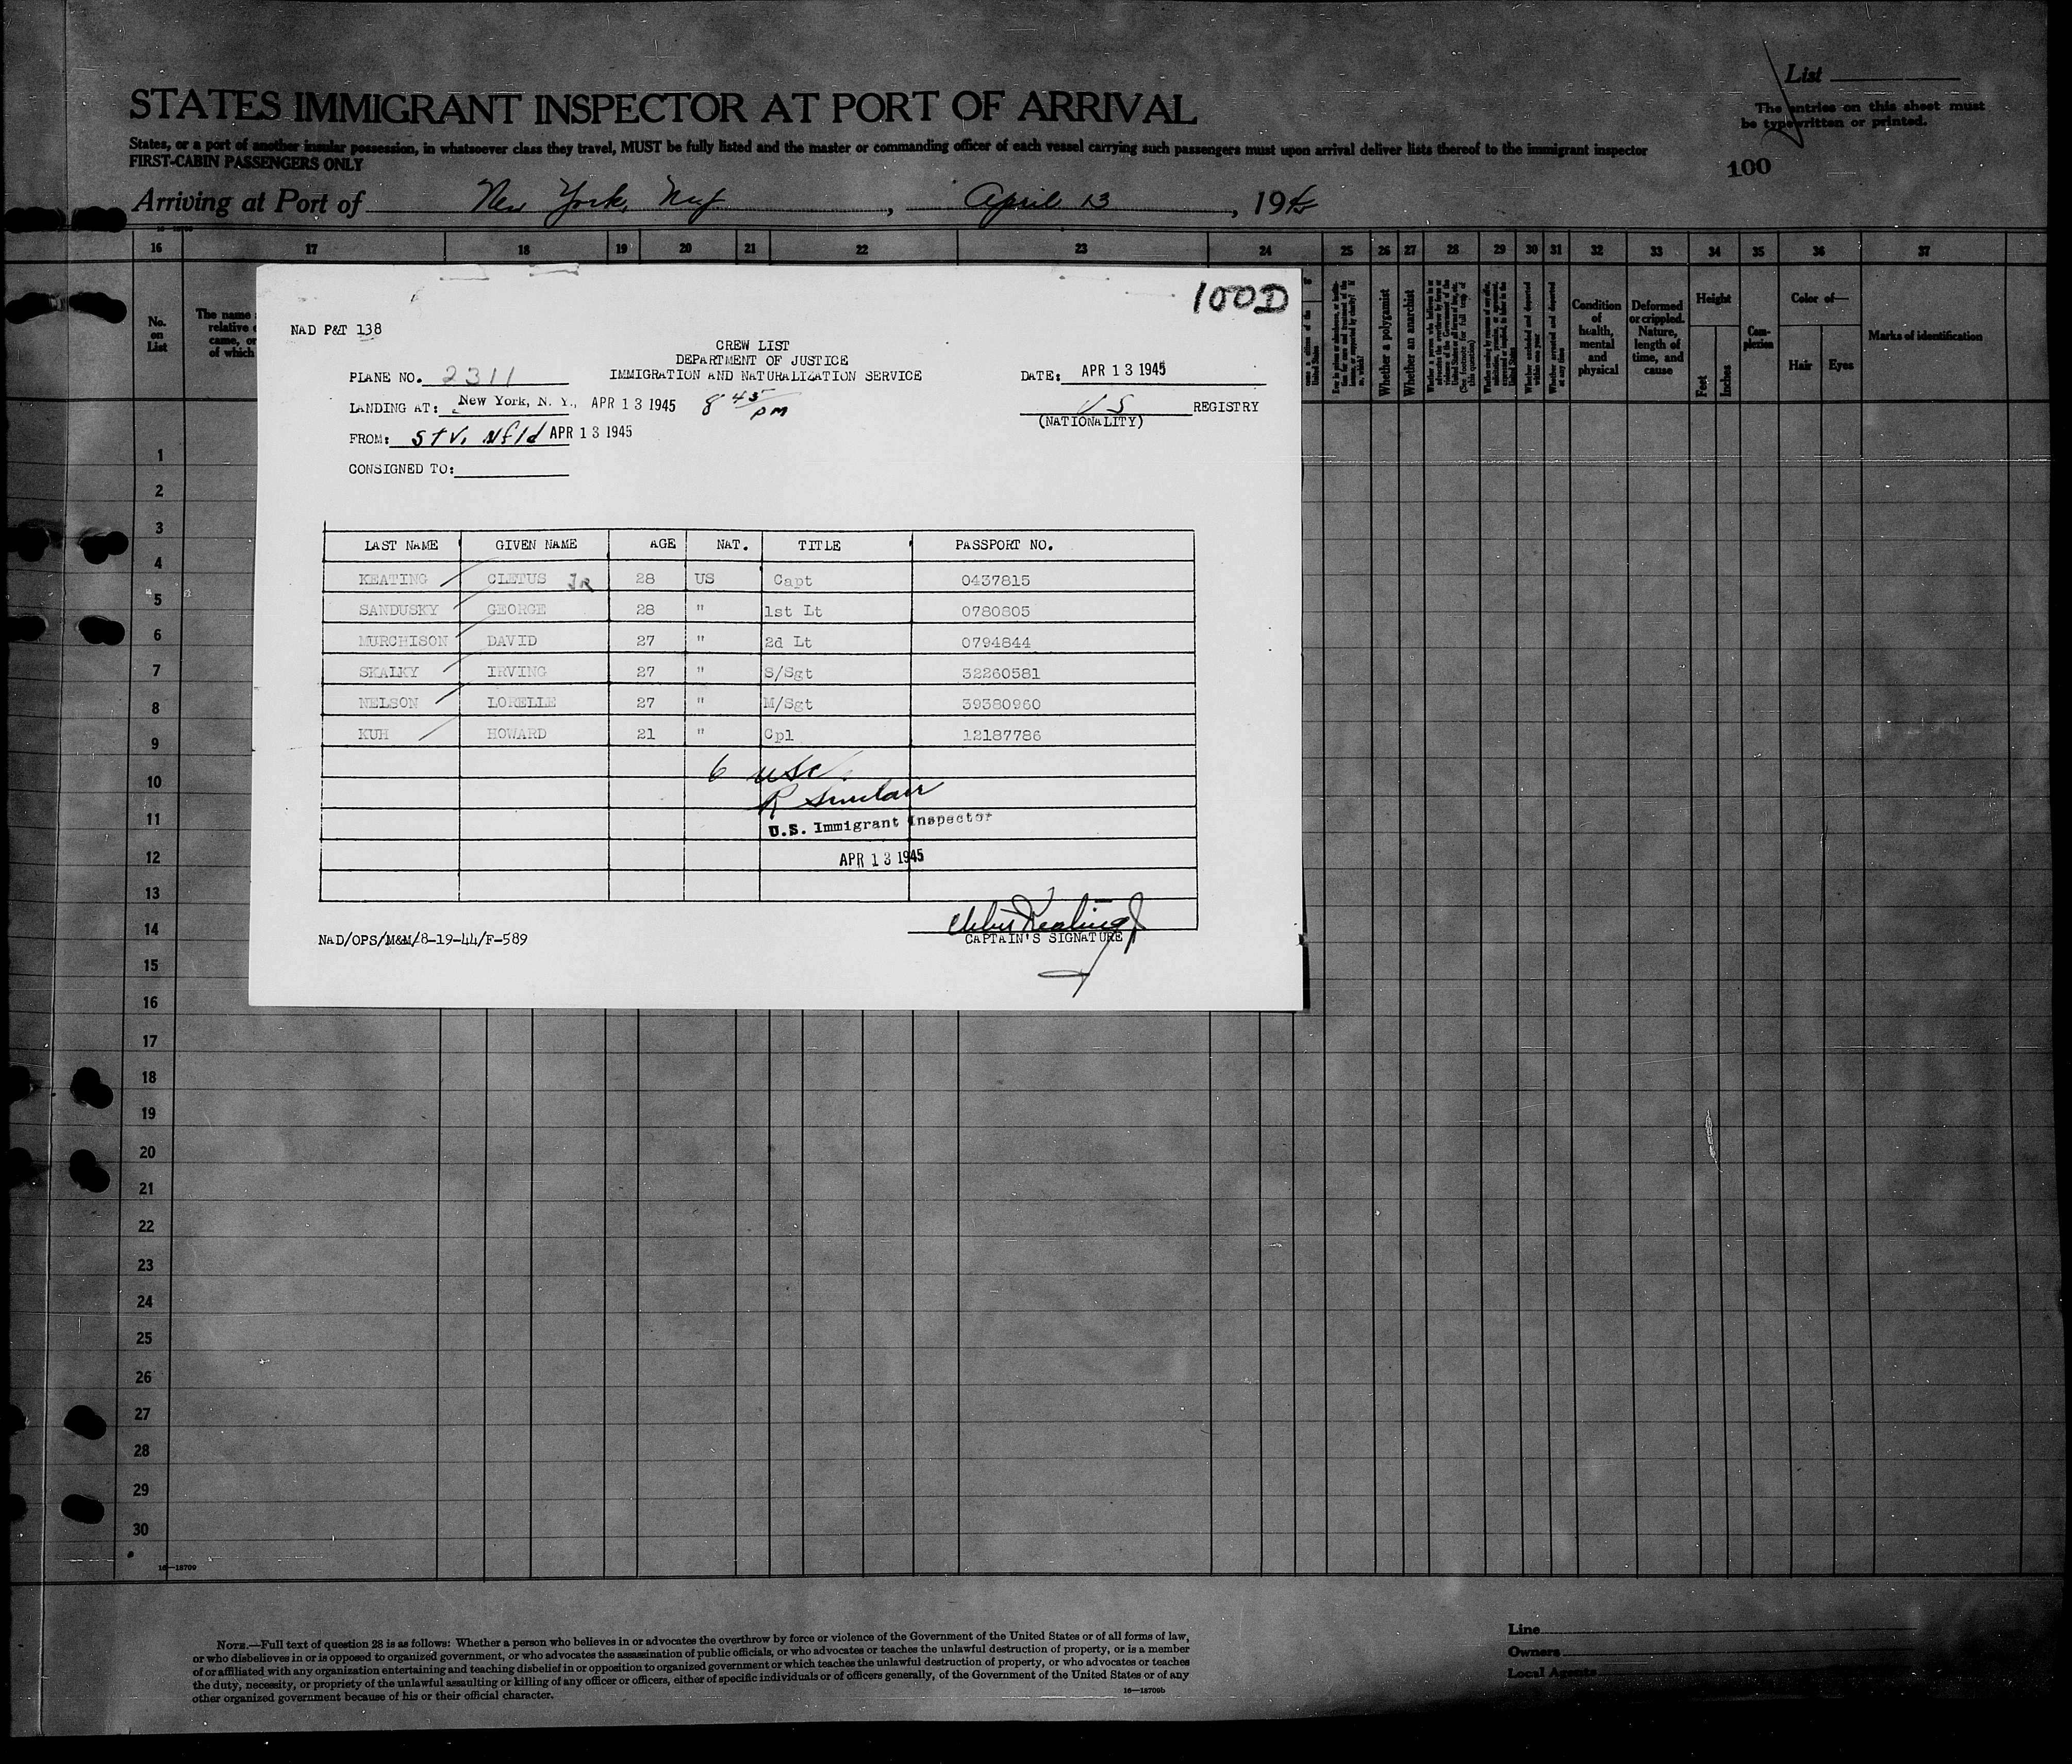 List
STATES IMMIGRANT INSPECTOR AT PORT OF ARRIVAL
The entries on this sheet must
be typewritten or printed.
States, or a port of another insular possession, in whatsoever class they travel, MUST be fully listed and the master or commanding officer of each vessel carrying such passengers must upon arrival deliver lists thereof to the immigrant inspector
FIRST-CABIN PASSENGERS ONLY
100
Arriving at Port of New York, , April 13, 1945
16 17 18 19 20 21 22 23 24 25 26 27 28 29 30 31 32 33 34 35 36 37
No.
on
List
The name
relative
came, or
of which
Whether a polygamist
Whether an anarchist
Condition
of
health,
mental
and
physical
Deformed
or crippled.
Nature,
length of
time, and
cause
Height
Feet
Inches
Com-
plexion
Color of—
Hair Eyes
Marks of identification
100D
NAD P&T 138
CREW LIST
DEPARTMENT OF JUSTICE
IMMIGRATION AND NATURALIZATION SERVICE
PLANE NO. 2311
DATE: APR 13 1945
LANDING AT: New York, N. Y., APR 13 1945 8 45 PM
US REGISTRY
(NATIONALITY)
FROM: STV. Nfld APR 13 1945
CONSIGNED TO:
LAST NAME GIVEN NAME AGE NAT. TITLE PASSPORT NO.
KEATING CLETUS JR 28 US Capt 0437815
SANDUSKY GEORGE 28 " 1st Lt 0780805
MURCHISON DAVID 27 " 2d Lt 0794844
SKALKY IRVING 27 " S/Sgt 32260581
NELSON LORELLE 27 " M/Sgt 39380960
KUH HOWARD 21 " Cpl 12187786
6 USC.
R Sinclair
U.S. Immigrant Inspector
APR 13 1945
Cletus Keating Jr
CAPTAIN'S SIGNATURE
NAD/OPS/M&M/8-19-44/F-589
1
2
3
4
5
6
7
8
9
10
11
12
13
14
15
16
17
18
19
20
21
22
23
24
25
26
27
28
29
30
16—18709
NOTE.—Full text of question 28 is as follows: Whether a person who believes in or advocates the overthrow by force or violence of the Government of the United States or of all forms of law,
or who disbelieves in or is opposed to organized government, or who advocates the assassination of public officials, or who advocates or teaches the unlawful destruction of property, or is a member
of or affiliated with any organization entertaining and teaching disbelief in or opposition to organized government or which teaches the unlawful destruction of property, or who advocates or teaches
the duty, necessity, or propriety of the unlawful assaulting or killing of any officer or officers, either of specific individuals or of officers generally, of the Government of the United States or of any
other organized government because of his or their official character.
16—18709b
Line
Owners
Local Agents